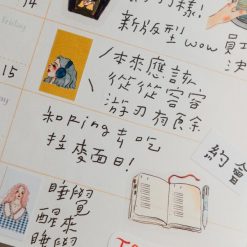 14
新版型 wow
員
決
Friday
15
本來應該
從從容容
游刃有餘
和Ring去吃
拉麵日!
約會
睡覺
醒來
睡覺